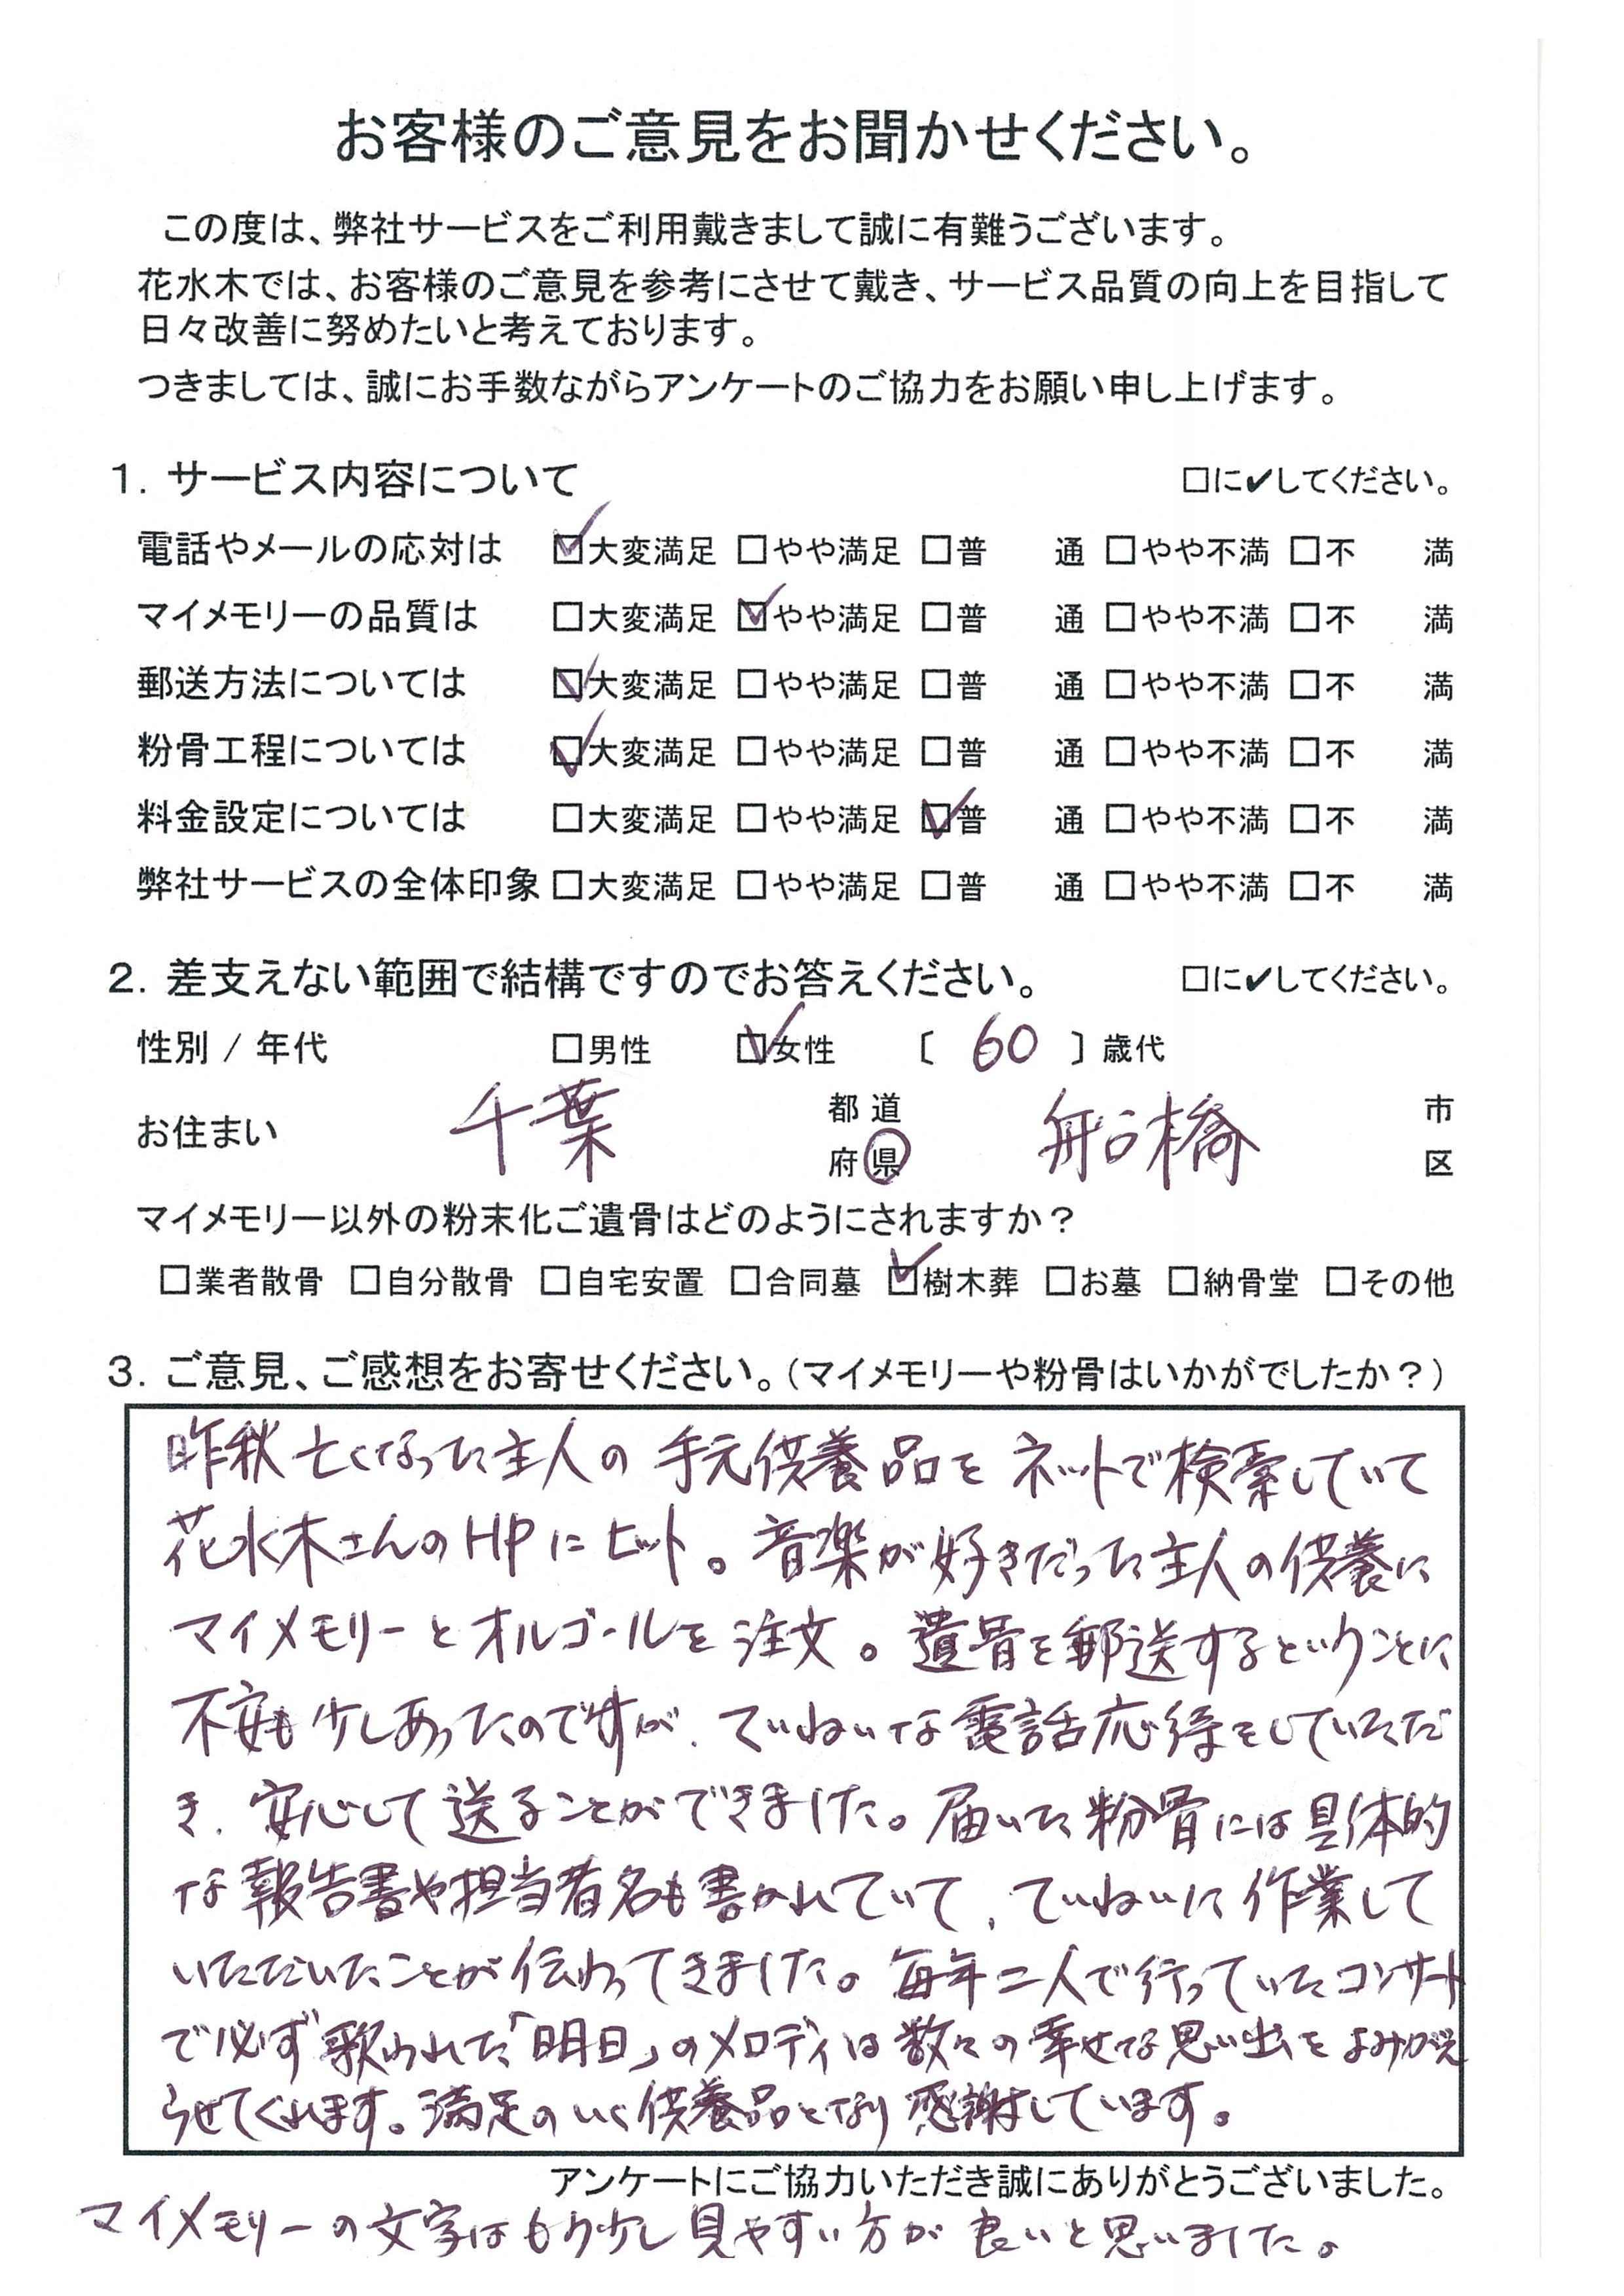 お客様のご意見をお聞かせください。
この度は、弊社サービスをご利用戴きまして誠に有難うございます。
花水木では、お客様のご意見を参考にさせて戴き、サービス品質の向上を目指して
日々改善に努めたいと考えております。
つきましては、誠にお手数ながらアンケートのご協力をお願い申し上げます。
1. サービス内容について □に✔してください。
電話やメールの応対は ☑大変満足 □やや満足 □普 通 □やや不満 □不 満
マイメモリーの品質は □大変満足 ☑やや満足 □普 通 □やや不満 □不 満
郵送方法については ☑大変満足 □やや満足 □普 通 □やや不満 □不 満
粉骨工程については ☑大変満足 □やや満足 □普 通 □やや不満 □不 満
料金設定については □大変満足 □やや満足 ☑普 通 □やや不満 □不 満
弊社サービスの全体印象 □大変満足 □やや満足 □普 通 □やや不満 □不 満
2. 差支えない範囲で結構ですのでお答えください。 □に✔してください。
性別 / 年代 □男性 ☑女性 〔 60 〕歳代
お住まい 千葉 都道府県 船橋 市区
マイメモリー以外の粉末化ご遺骨はどのようにされますか?
□業者散骨 □自分散骨 □自宅安置 □合同墓 ☑樹木葬 □お墓 □納骨堂 □その他
3. ご意見、ご感想をお寄せください。(マイメモリーや粉骨はいかがでしたか?)
昨秋亡くなった主人の手元供養品をネットで検索していて
花水木さんのHPにヒット。音楽が好きだった主人の供養に
マイメモリーとオルゴールを注文。遺骨を郵送するということに
不安も少しあったのですが、ていねいな電話応待をしていただ
き、安心して送ることができました。届いた粉骨には具体的
な報告書や担当者名も書かれていて、ていねいに作業して
いただいたことが伝わってきました。毎年二人で行っていたコンサート
で必ず歌われた「明日」のメロディは数々の幸せな思い出をよみがえ
らせてくれます。満足のいく供養品となり感謝しています。
アンケートにご協力いただき誠にありがとうございました。
マイメモリーの文字はもう少し見やすい方が良いと思いました。